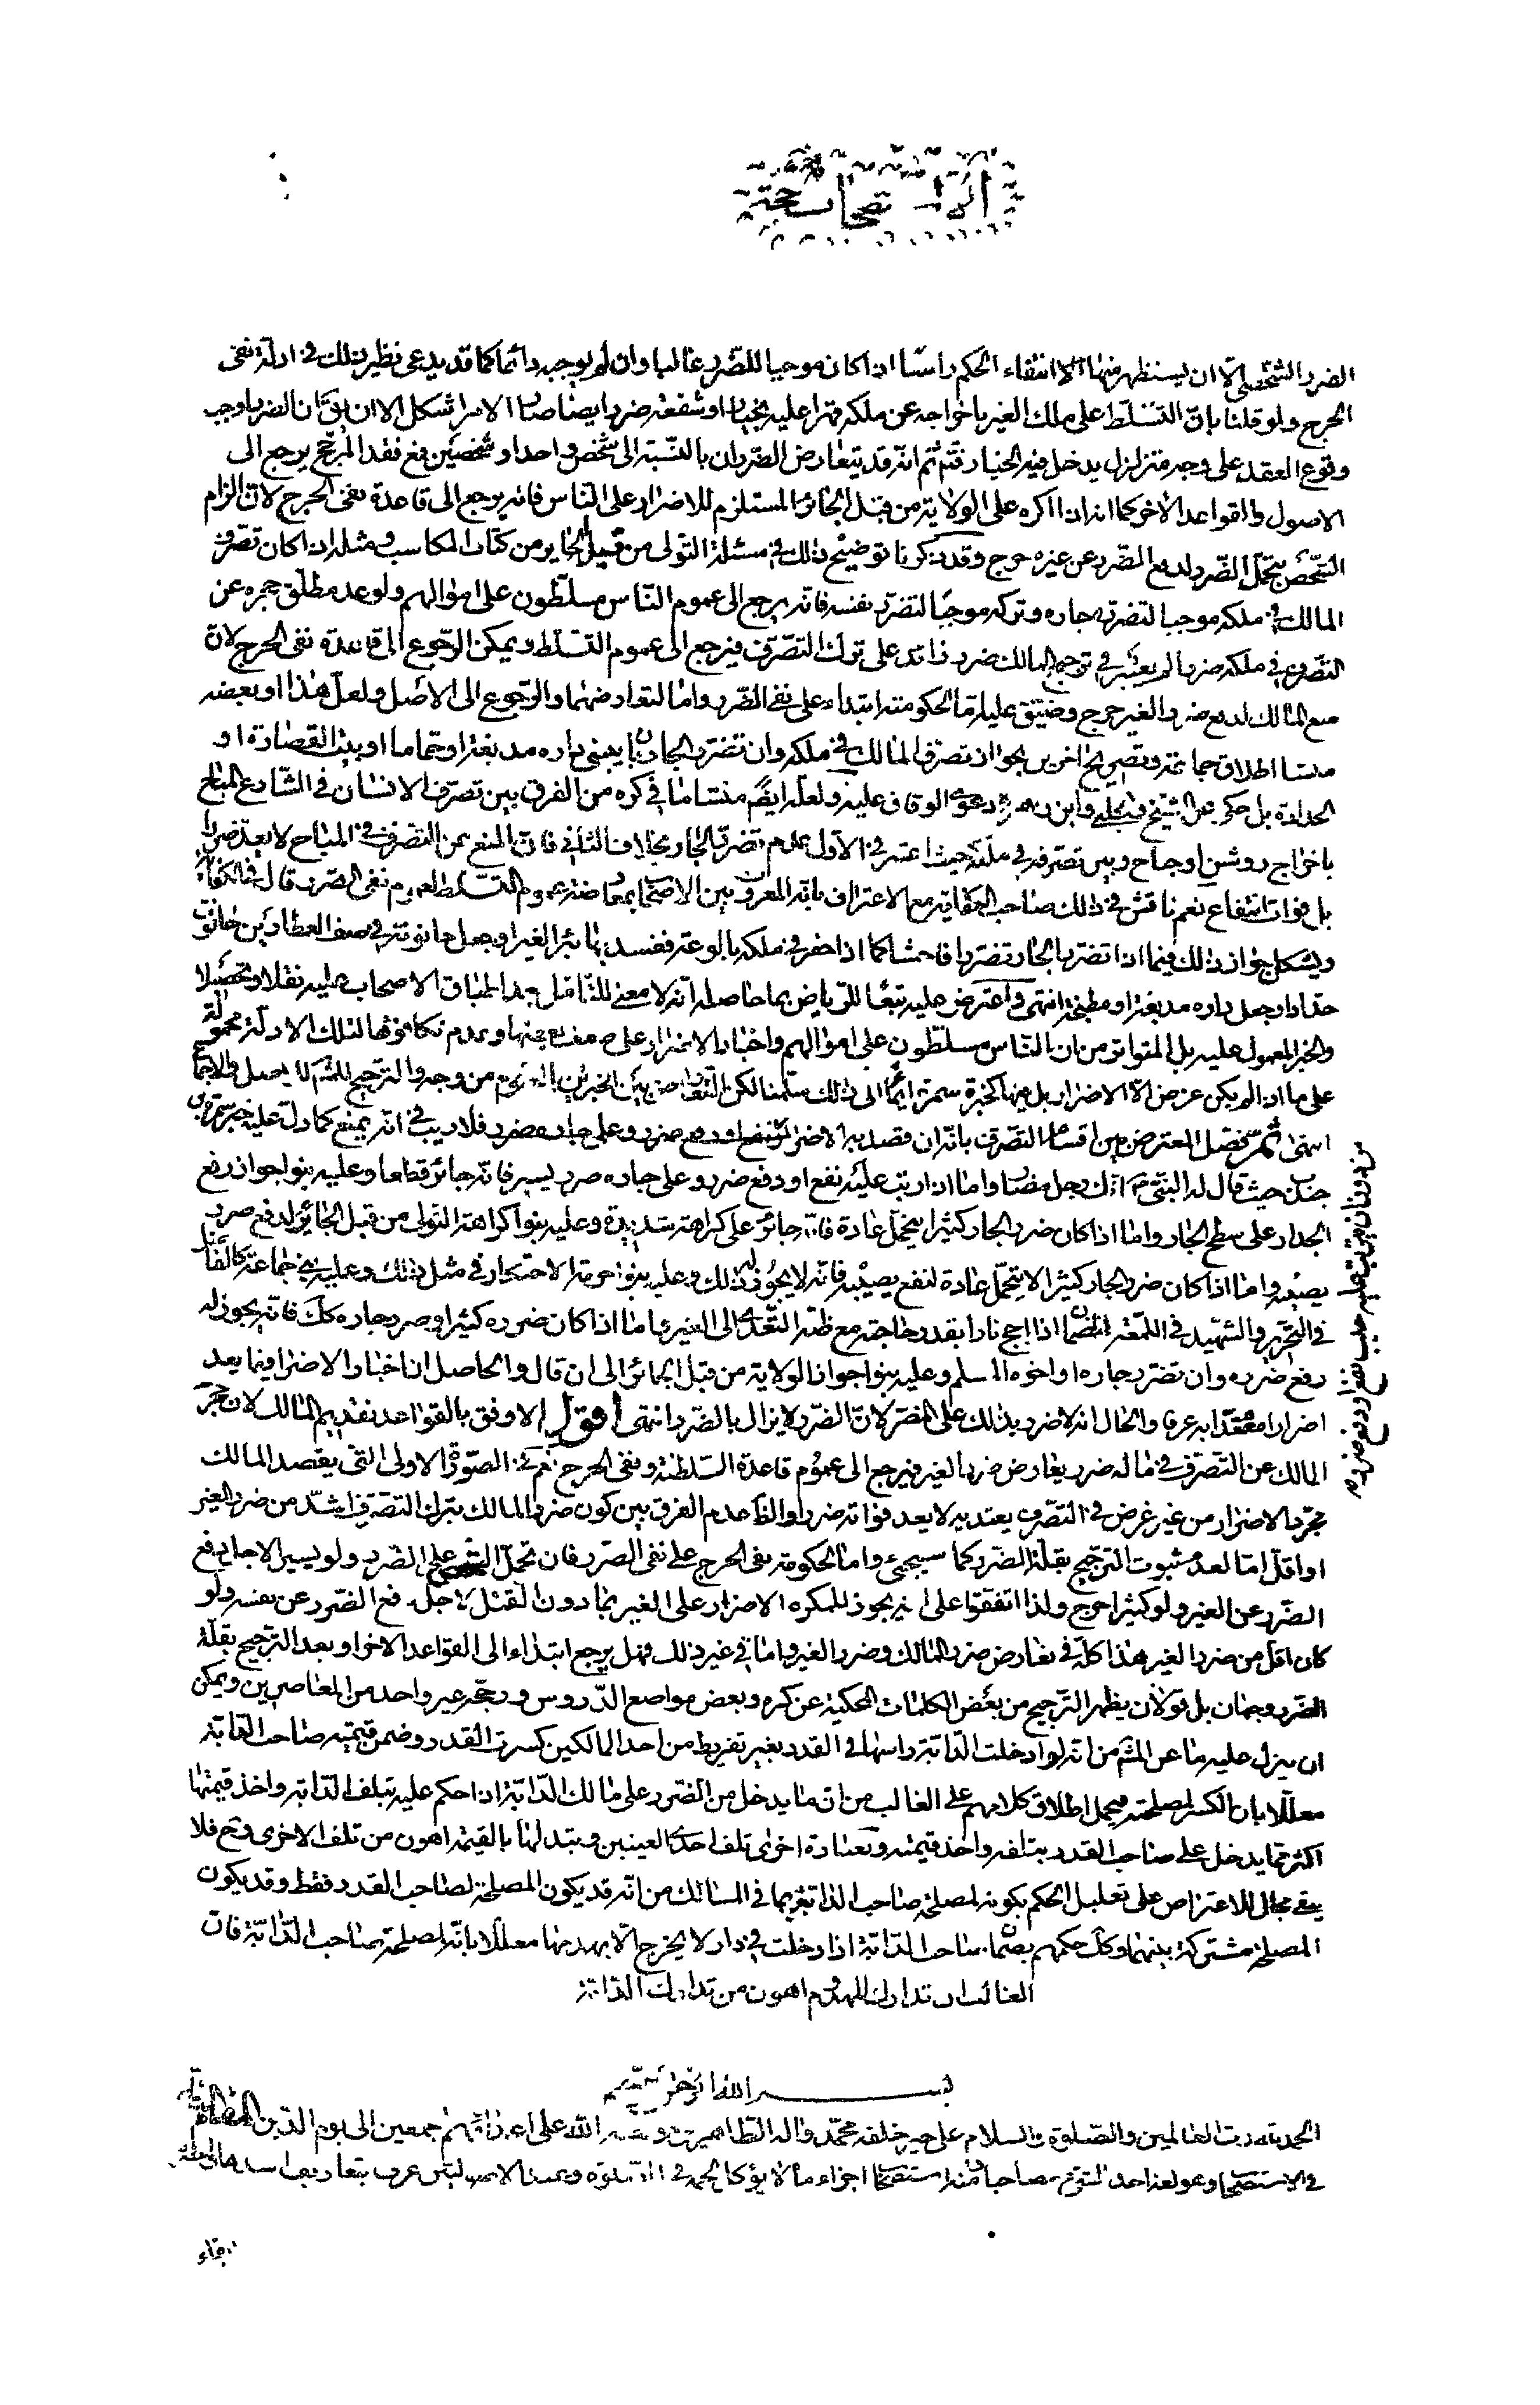 الضرر الشخصى الا ان يستظهر منها الانتفاء الحكم راسا اذا كان موجبا للضرر غالبا وان لم يوجبه دائما كما قد يدعى نظير ذلك فى ادلة نفى
الحرج ولو قلنا بان التسلط على ملك الغير باخراجه عن ملكه قهرا عليه بخيار او شفعة ضرر ايضا صار الامر اشكل الا ان يق ان الضرر اوجب
وقوع العقد على وجه متزلزل يدخل فيه الخيار فتم ثم انه قد يتعارض الضرران بالنسبة الى شخص واحد او شخصين فمع فقد المرجح يرجع الى
الاصول والقواعد الاخر كما انه اذا اكره على الولاية من قبل الجائر المستلزم للاضرار على الناس فانه يرجع الى قاعدة نفى الحرج لان الزام
الشخص بتحمل الضرر لدفع الضرر عن غيره حرج وقد ذكرنا توضيح ذلك فى مسئلة التولى من قبل الجاير من كتاب المكاسب ومثله اذا كان تصرف
المالك فى ملكه موجبا لتضرر جاره وتركه موجبا لتضرر نفسه فانه يرجع الى عموم الناس مسلطون على اموالهم ولو عد مطلق حجره عن
التصرف فى ملكه ضررا لم يعتبر فى ترجيح المالك ضرر زائد على ترك التصرف فيرجع الى عموم التسلط ويمكن الرجوع الى قاعدة نفى الحرج لان
منع المالك لدفع ضرر الغير حرج وضيق عليه اما لحكومته ابتداء على نفى الضرر واما لتعارضهما والرجوع الى الاصل ولعل هذا او بعضه
منشا اطلاق جماعة وتصريح اخرين بجواز تصرف المالك فى ملكه وان تضرر الجار بان يبنى داره مدبغة او حماما او بيت القصارة او
الحدادة بل حكى عن الشيخ والحلبى وابن زهرة دعوى الوفاق عليه ولعله ايضا منشا ما فى كره من الفرق بين تصرف الانسان فى الشارع المباح
باخراج روشن او جناح وبين تصرفه فى ملكه حيث اعتبر فى الاول عدم تضرر الجار بخلاف الثانى فان المنع عن التصرف فى المباح لا يعد ضررا
بل فوات انتفاع نعم ناقش فى ذلك صاحب الكفاية مع الاعتراف بانه المعروف بين الاصحاب بمعارضة عموم التسلط لعموم نفى الضرر قال فى الكفاية
ويشكل جواز ذلك فيما اذا تضرر الجار تضررا فاحشا كما اذا حفر فى ملكه بالوعة ففسد بها بئر الغير او جعل حانوته فى صف العطارين حانوت
حداد او جعل داره مدبغة او مطبخة انتهى واعترض عليه تبعا للرياض بما حاصله انه لا معنى للتامل بعد اطباق الاصحاب عليه نقلا وتحصيلا
والخبر المعمول عليه بل المتواتر من ان الناس مسلطون على اموالهم واخبار الاضرار على ضعف بعضها وعدم تكافؤها لتلك الادلة محمولة
على ما اذا لم يكن غرض الا الاضرار بل فيها كخبر سمرة ايماء الى ذلك سلمنا لكن التعارض بين الخبرين بالعموم من وجه والترجيح للمشهور للاصل والاجماع
انتهى ثم فصل المعترض بين اقسام التصرف بانه ان قصد به الاضرار من دون ان يترتب عليه جلب نفع او دفع ضرر فلا ريب فى انه يمنع كما دل عليه خبر سمرة بن
جندب حيث قال له النبى ص انك رجل مضار واما اذا ترتب عليه نفع او دفع ضرر وعلى جاره ضرر يسير فانه جائز قطعا وعليه بنوا جواز رفع
الجدار على سطح الجار واما اذا كان ضرر الجار كثيرا يتحمل عادة فانه جائز على كراهة شديدة وعليه بنوا كراهة التولى من قبل الجائر لدفع ضرر
يصيبه واما اذا كان ضرر الجار كثيرا لا يتحمل عادة لنفع يصيبه فانه لا يجوز له ذلك وعليه بنوا حرمة الاحتكار فى مثل ذلك وعليه بنى جماعة كالفاضل
فى التحرير والشهيد فى اللمعة الضمان اذا اجج نارا بقدر حاجته مع ظنه التعدى الى الغير واما اذا كان ضرره كثيرا وضرر جاره كك فانه يجوز له
دفع ضرره وان تضرر جاره او اخوه المسلم وعليه بنوا جواز الولاية من قبل الجائر الى ان قال والحاصل ان اخبار الاضرار فيما يعد
اضرارا معتدا به عرفا والحال انه لا ضرر بذلك على المضر لان الضرر لا يزال بالضرر انتهى اقول الاوفق بالقواعد تقديم المالك لان حجر
المالك عن التصرف فى ماله ضرر يعارض ضرر الغير فيرجع الى عموم قاعدة السلطنة ونفى الحرج نعم فى الصورة الاولى التى يقصد المالك
مجرد الاضرار من غير غرض فى التصرف يعتد به لا يعد فواته ضررا والظ عدم الفرق بين كون ضرر المالك بترك التصرف اشد من ضرر الغير
او اقل اما لعدم ثبوت الترجيح بقلة الضرر كما سيجيء واما لحكومة نفى الحرج على نفى الضرر فان تحمل الشخص على الضرر ولو يسيرا لاجل دفع
الضرر عن الغير ولو كثيرا حرج ولذا اتفقوا على انه يجوز للمكره الاضرار على الغير بما دون القتل لاجل دفع الضرر عن نفسه ولو
كان اقل من ضرر الغير هذا كله فى تعارض ضرر المالك وضرر الغير واما فى غير ذلك فهل يرجع ابتداء الى القواعد الاخر او بعد الترجيح بقلة
الضرر وجهان بل قولان يظهر الترجيح من بعض الكلمات المحكية عن كره وبعض مواضع الدروس ورجحه غير واحد من المعاصرين ويمكن
ان ينزل عليه ما عن المشهور من انه لو ادخلت الدابة راسها فى القدر بغير تفريط من احد المالكين كسرت القدر وضمن قيمته صاحب الدابة
معللا بان الكسر لمصلحته فيحمل اطلاق كلامهم على الغالب من ان ما يدخل من الضرر على مالك الدابة اذا حكم عليه بتلف الدابة واخذ قيمتها
اكثر مما يدخل على صاحب القدر بتلفه واخذ قيمته وبعبارة اخرى تلف احدى العينين وتبدلها بالقيمة اهون من تلف الاخرى وح فلا
يبقى مجال للاعتراض على تعليل الحكم بكونه لمصلحة صاحب الدابة بما فى المسالك من انه قد يكون المصلحة لصاحب القدر فقط وقد يكون
المصلحة مشتركة بينهما وكك حكمهم بضمان صاحب الدابة اذا دخلت فى دار لا يخرج الا بهدمها معللا بانه لمصلحة صاحب الدابة فان
الغالب ان تدارك المهدوم اهون من تدارك الدابة
من دون ان يترتب عليه جلب نفع او دفع ضرر
بسم الله الرحمن الرحيم
الحمد لله رب العالمين والصلوة والسلام على خير خلقه محمد واله الطاهرين ولعنة الله على اعدائهم اجمعين الى يوم الدين المقام الثانى
فى الاستصحاب وهو لغة اخذ الشىء مصاحبا ومنه استصحاب اجزاء ما لا يؤكل لحمه فى الصلوة وعند الاصوليين عرف بتعاريف اسدها
ابقاء